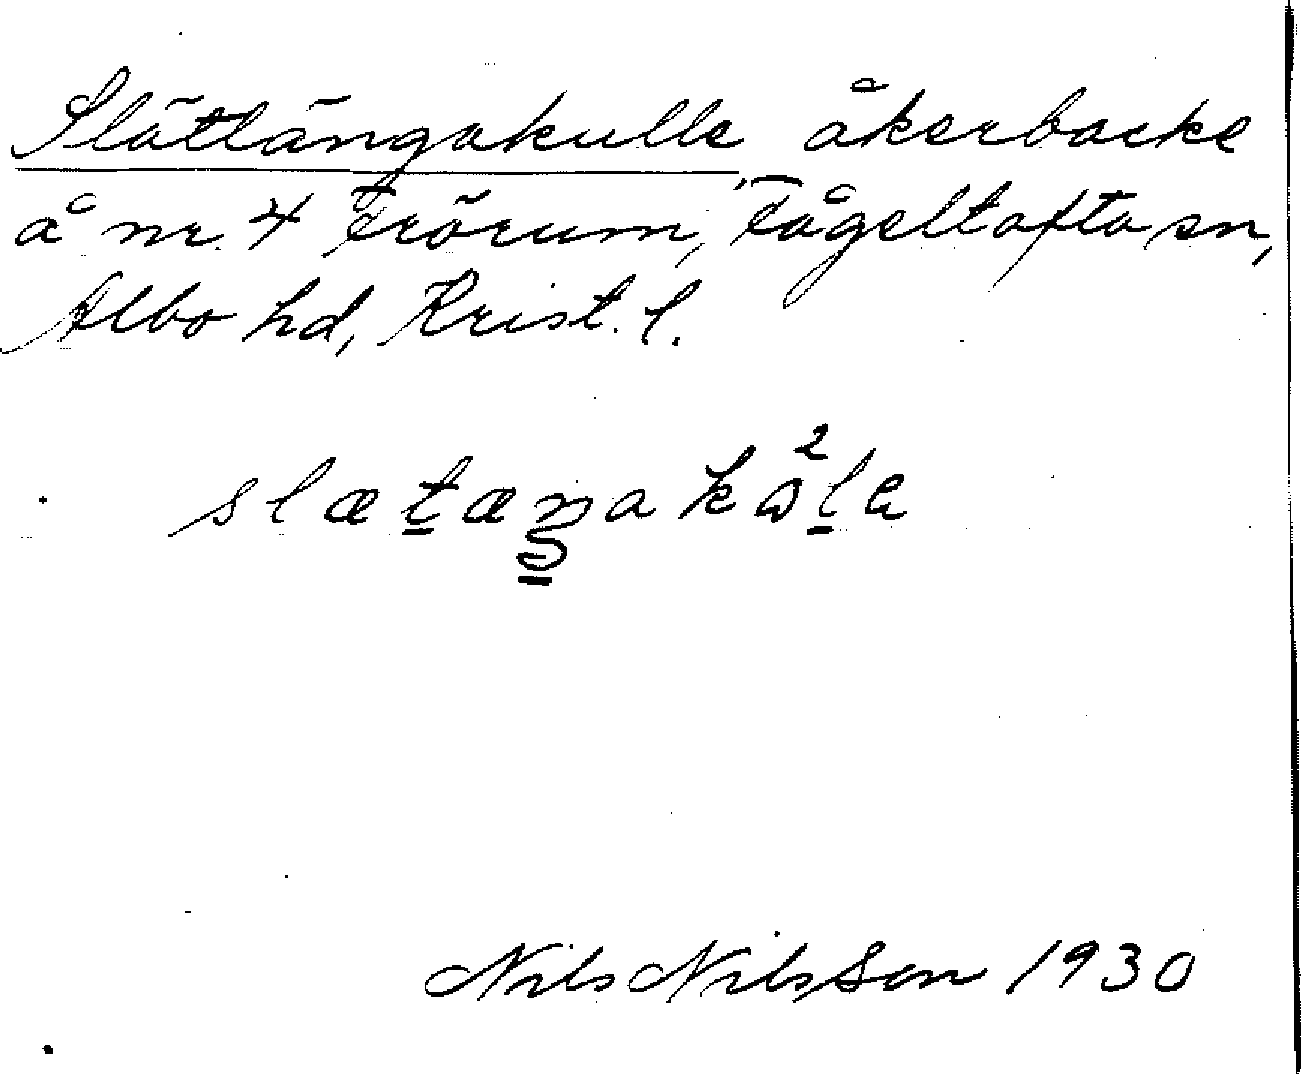 Slättängakulle, åkerbacke
å nr. 4 Frörum, Fågeltofta sn,
Albo hd, Krist. l.
Nils Nilsson 1930